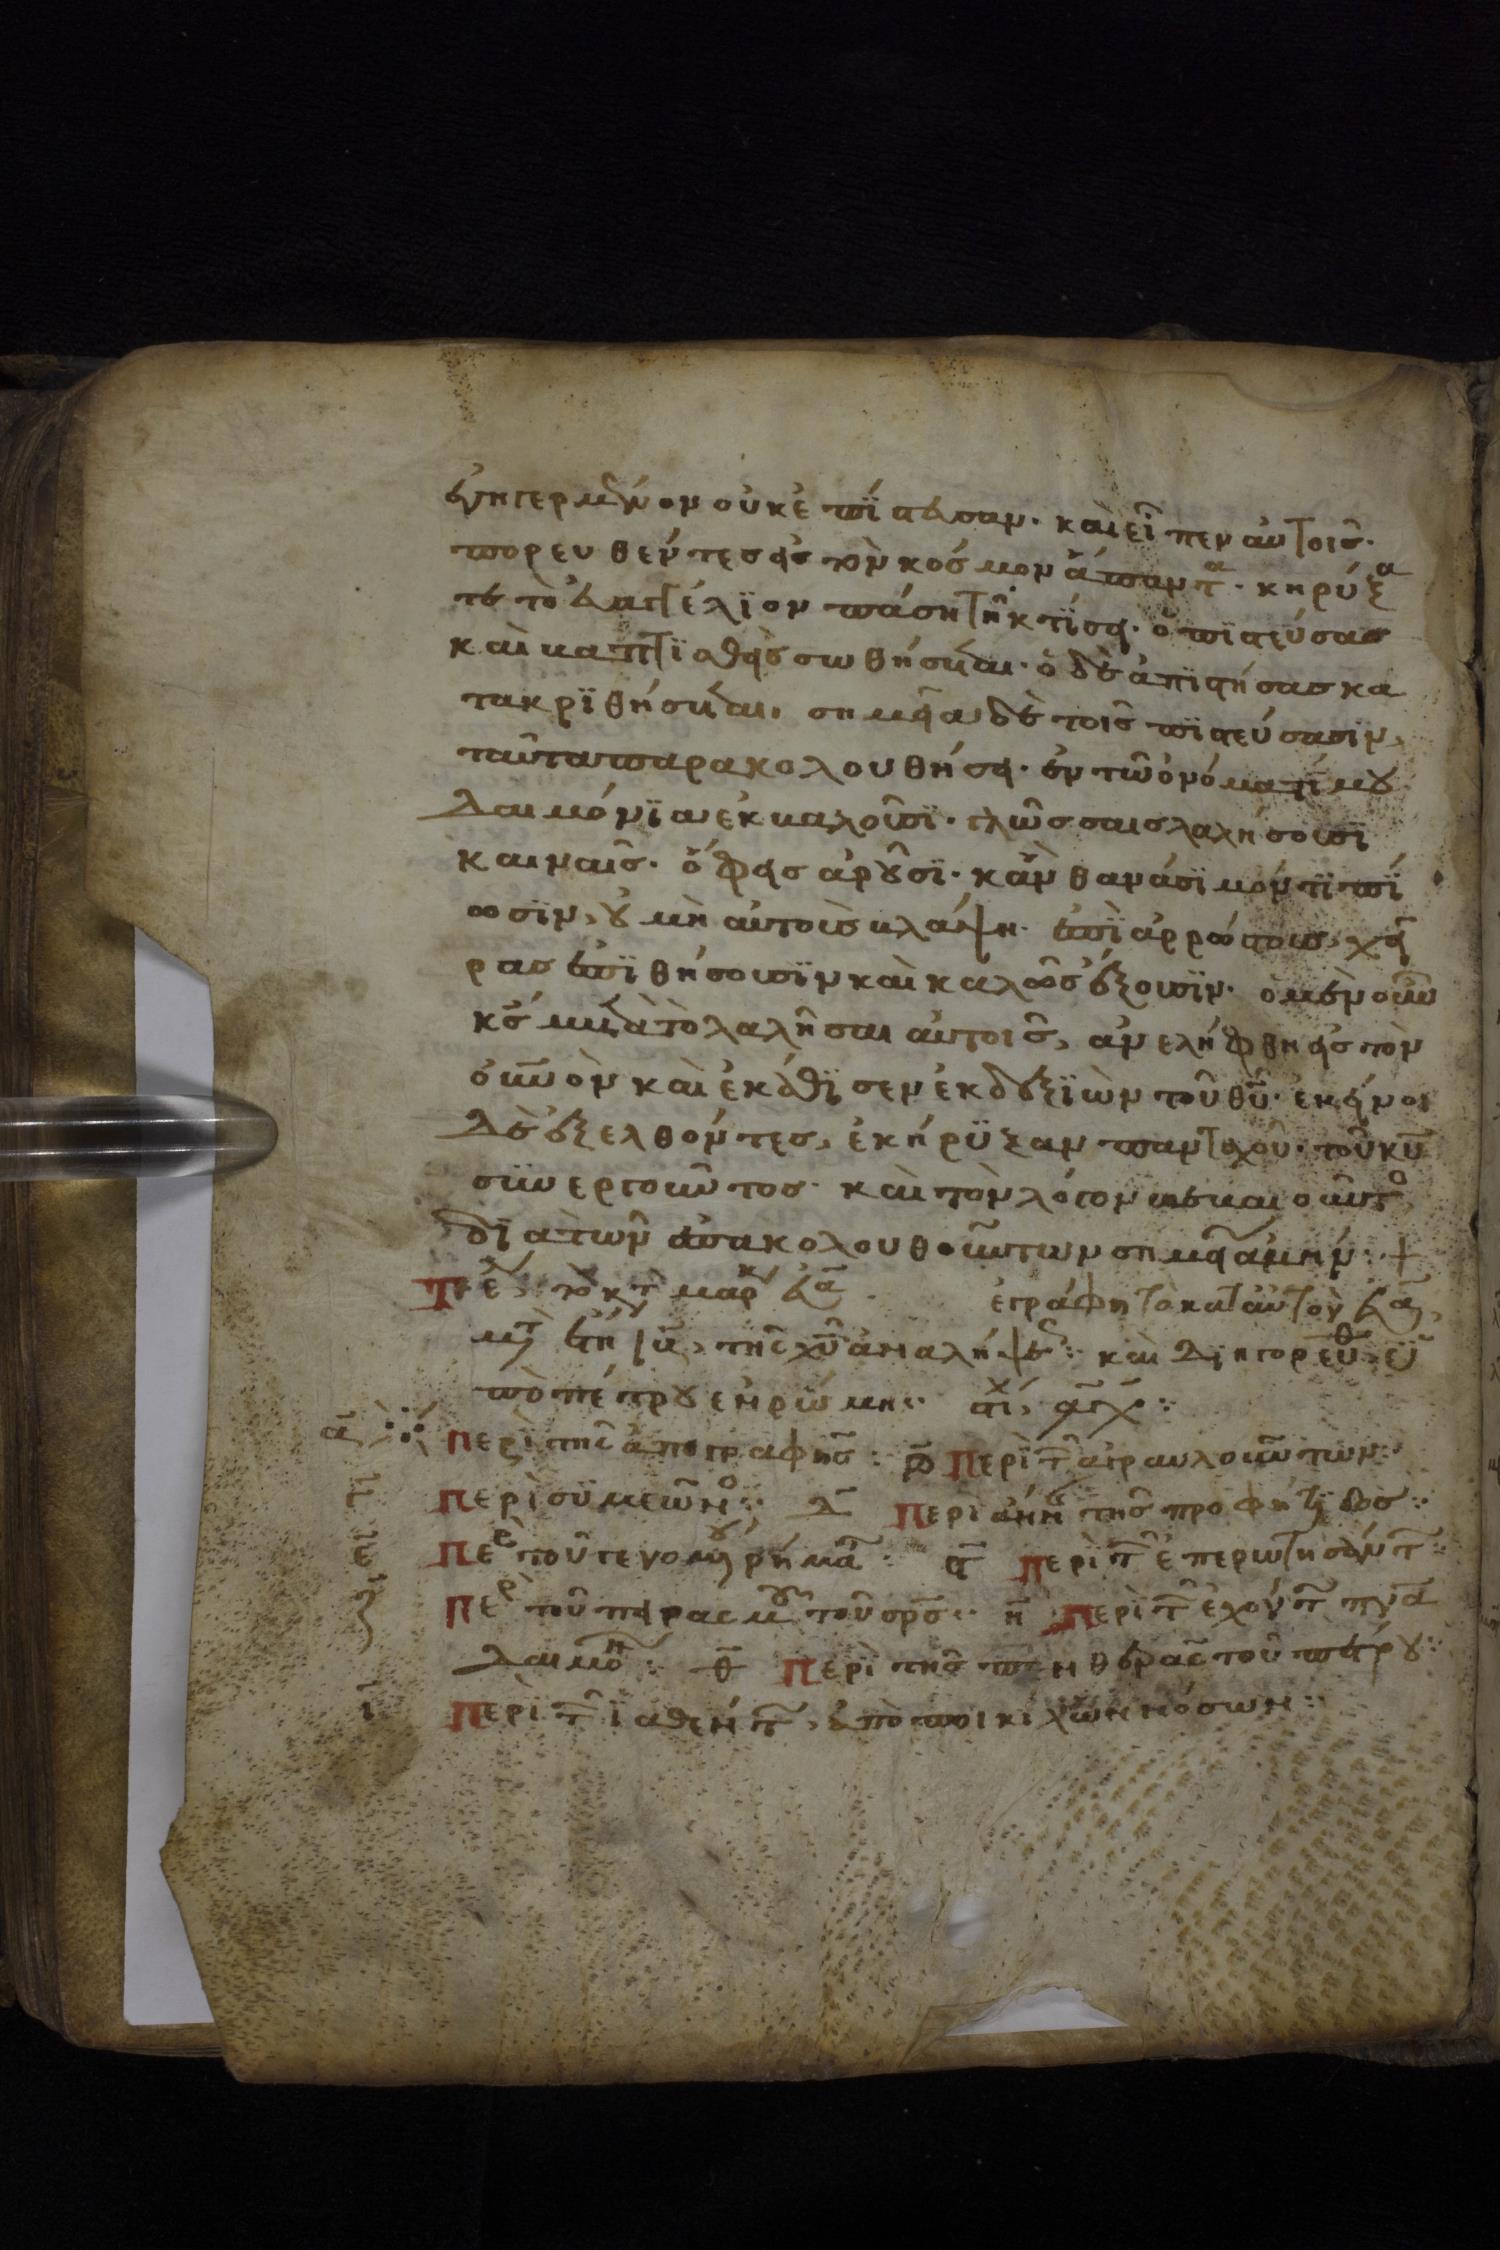 ἐγηγερμένον οὐκ ἐπΐστευσαν· καὶ εἶπεν αὐτοῖς·
πορευθέντες εἰς τὸν κόσμον ἅπαντα· κηρύξα
τε τὸ εὐαγγέλϊον πάση τῆ κτΐσει· ὁ πϊστεύσας
καὶ βαπτϊσθεὶς σωθήσεται· ὁ δὲ ἀπϊστήσας κα
τακρϊθήσεται· σημεῖα δὲ τοῖς πϊστεύσασϊν,
ταῦτα παρακολουθήσει· ἐν τῶ ὀνόματί μου
δαιμόνϊα ἐκβαλοῦσϊ· γλώσσαις λαλήσουσϊ
καιναῖς· ὄφεις ἀροῦσϊ· κἂν θανάσϊμόν τϊ πΐ
ωσϊν, οὐ μὴ αὐτοὺς βλάψη· ἐπῒ ἀρρώστους χεῖ
ρας ἐπϊθήσουσϊν καὶ καλῶς ἕξουσϊν· ὁ μὲν οὖν
κς μετὰ τὸ λαλῆσαι αὐτοῖς, ἀνελήφθη εἰς τὸν
οὐνὸν καὶ ἐκάθϊσεν ἐκ δεξϊῶν τοῦ θυ· ἐκεῖνοι
δὲ ἐξελθόντες, ἐκήρϋξαν πανταχοῦ· τοῦ κυ
σϋνεργοῦντος· καὶ τὸν λόγον βεβαιοῦντος
δϊὰ τῶν ἐπακολουθούντων σημείων ἀμήν: +
Τέλ τὸ κτ μαρκ εὐα· ἐγράφη τὸ κατ αὐτὸν εὐα,
μτ ἔτη ια, τῆς χυ ἀναλήψε: καὶ διηγορεύθ, ϋ
πὸ πέτρου ἐν ρώμη· στί, αχ:
α Περὶ τῆς ἀπογραφῆς: β Περὶ τ ἀγραυλούντων:
γ Περὶ σϋμεῶνο: δ Περὶ ἄννης τῆς προφήτϊδος:
ε Περ τοῦ γενομου ρήμα: ϛ Περὶ τ ἐπερωτησάντ:
ζ Περ τοῦ πειρασμου τοῦ σρς: η Περὶ τ ἐχόντ πνα
δαιμονη: θ Περὶ τῆς πενθερᾶς τοῦ πέτρου:
ι Περὶ τ ἰαθέντ, ἀπὸ ποικίλων νόσων: